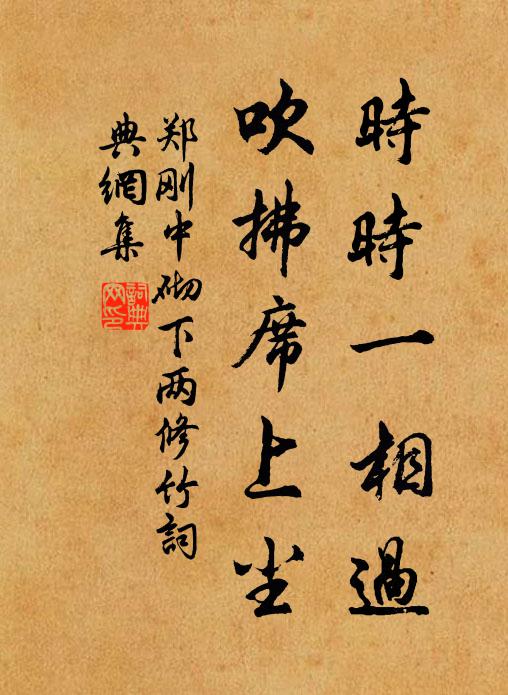 時時一相過
吹拂席上尘
郑刚中砌下两修竹词
典網集
詞典網印